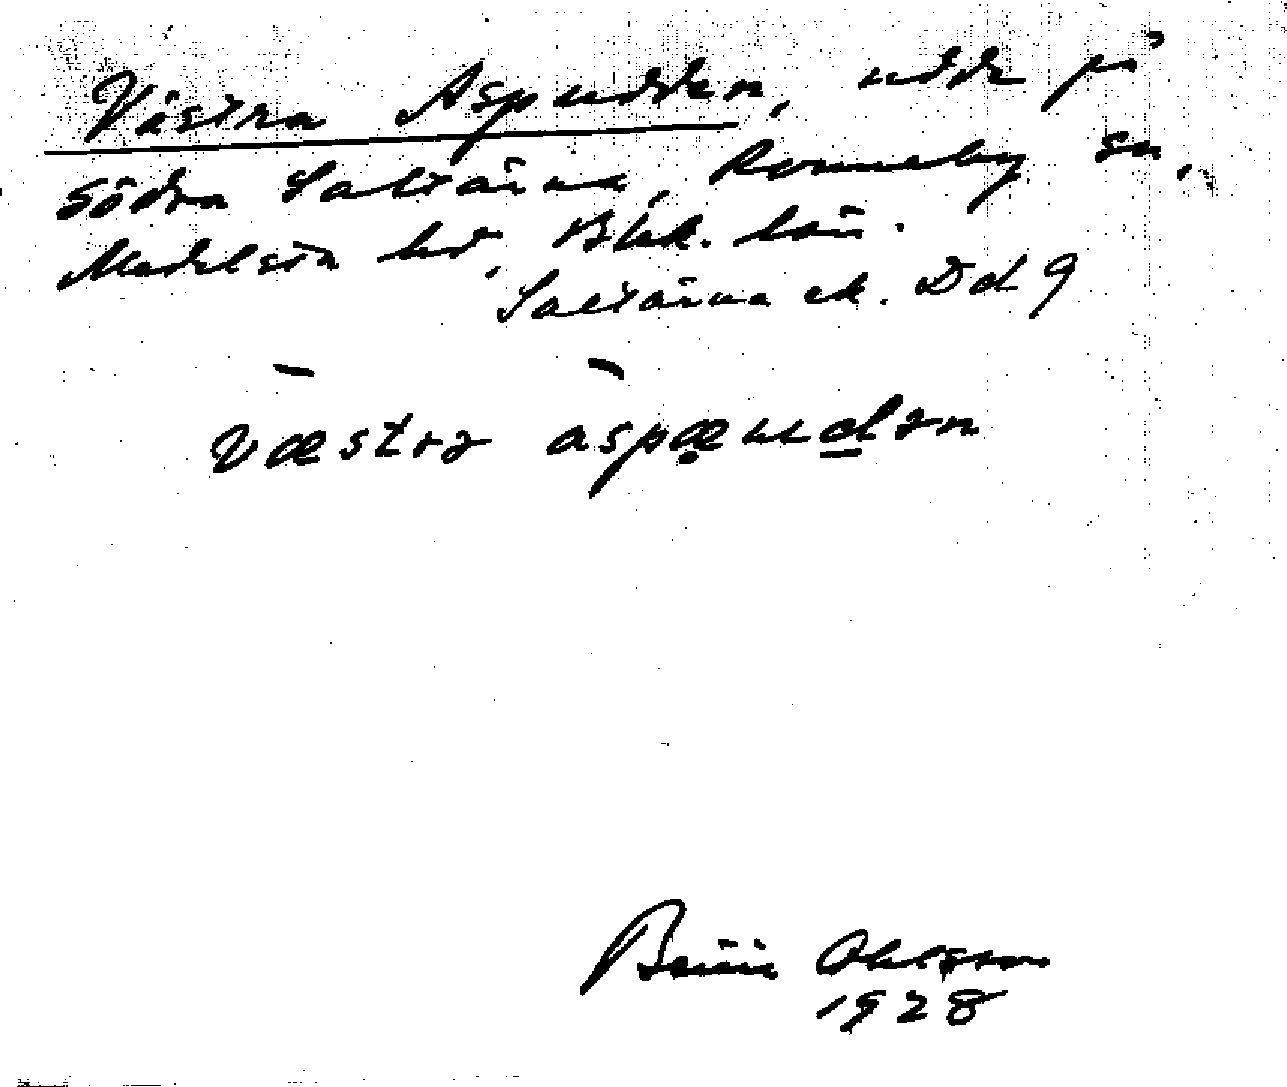 Västra Aspudden, udde på
Södra Saltärna, Ronneby sn,
Medelsta hd, Blek. län.
Saltärna ek. Dd 9
væstrə aspæudən
Ohlsson
1928